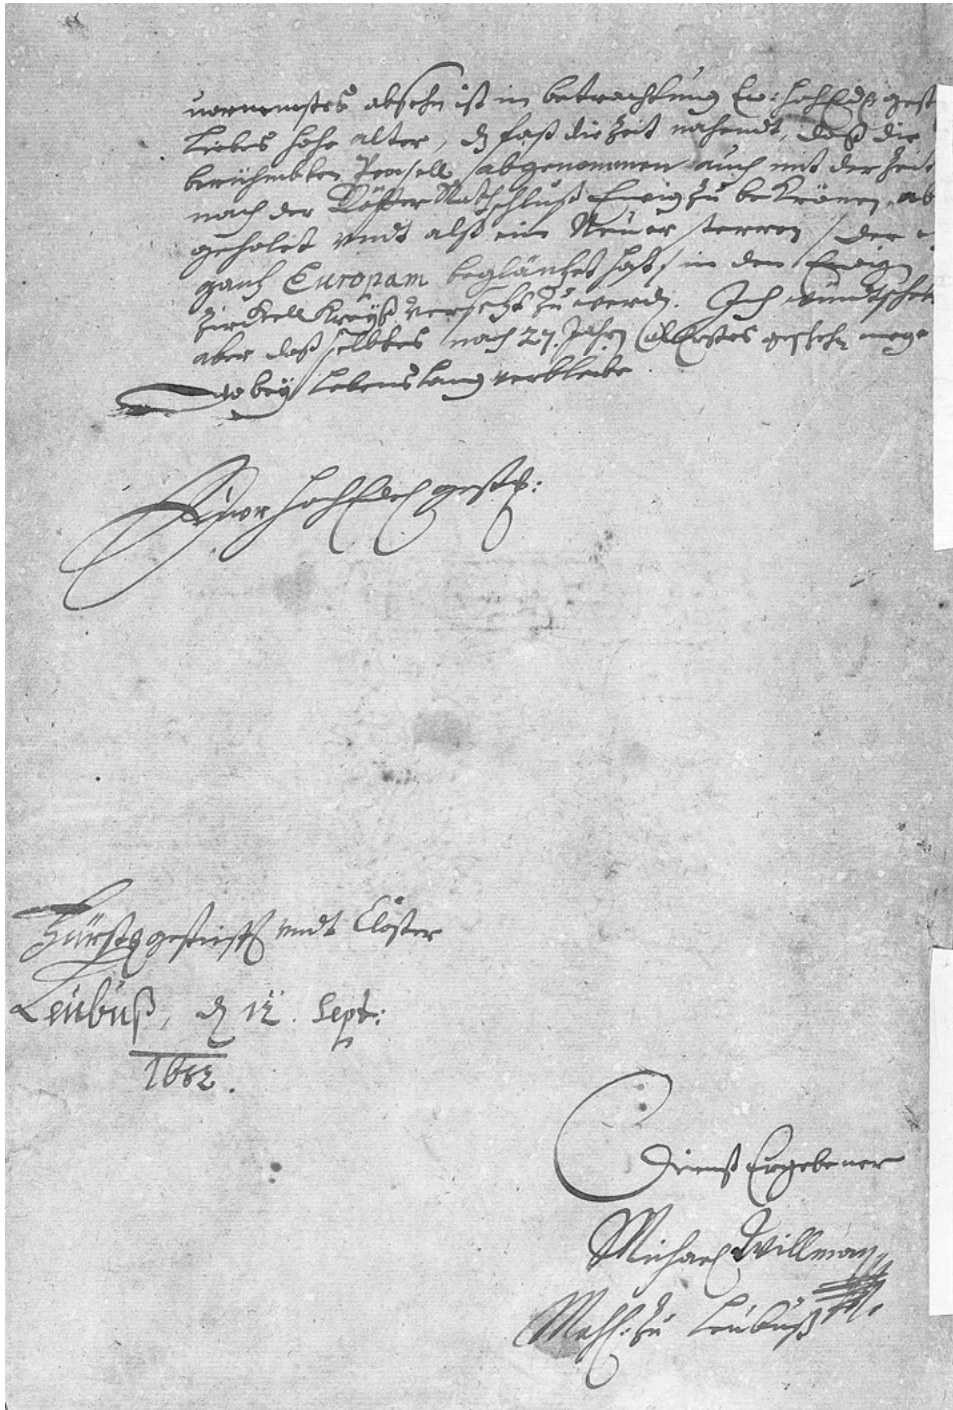 vornembstes absehn ist in betrachtung Ew: HochEdl: gest
Liebes hohe alter, dz fast die Zeit nahendt, daß die
berühmbten Pensell abgenommen auch mit der Zeit
nach der Götter Rathschluß Ewig zu bekrönen, ab
geholet undt alß ein Neuer sterren, der
gantz Europam begläntzet hat, in den Ewign
Zirckell Kreyß versetzt zu werdn. Ich wündtsche
aber daß selbtes nach 27. Jahrn Erstes geschehn mege
dobey Lebenslang verbleibe.
Ewer HochEdel gestr:
Fürstl gestifft undt Closter
Leübuß, dn 12. Sept:
1682.
Dienst Ergebener
Michael Willman
Mahl: zu Leübuß